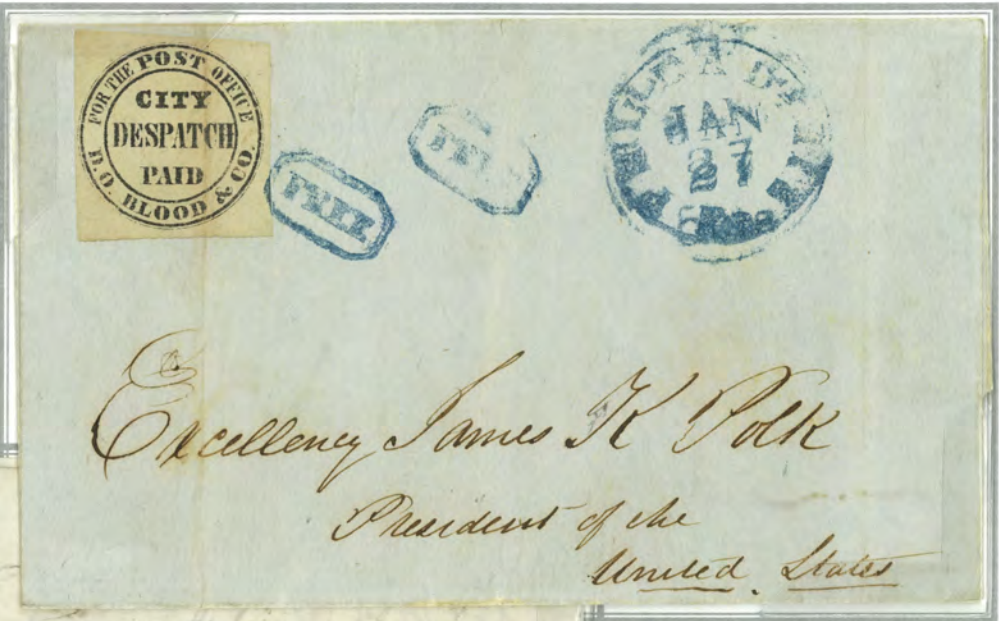 FOR THE POST OFFICE
CITY
DESPATCH
PAID
D.O. BLOOD & CO.
FREE
JAN
27
Excellency James K Polk
President of the
United States